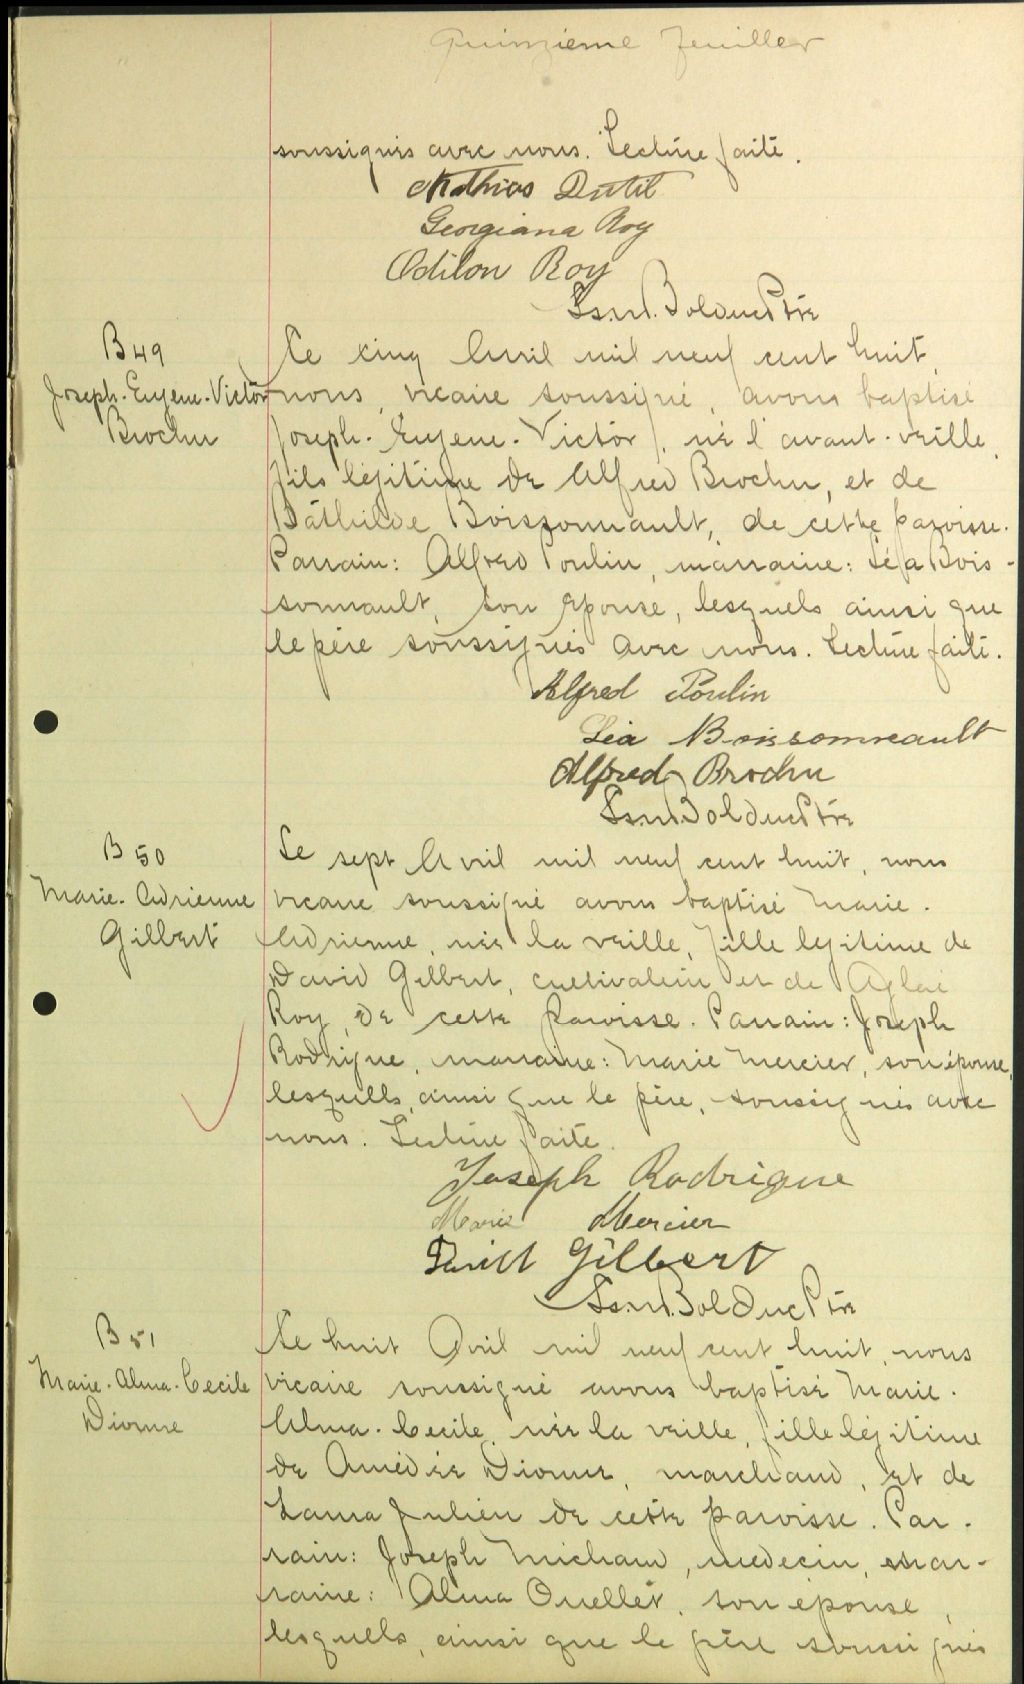 Quinzième feuillet
soussignés avec nous. Lecture faite.
Mathias Dutil
Georgiana Roy
Odilon Roy
Bolduc Ptre
B 49
Joseph-Eugene-Victor
Brochu
Le cinq Avril mil neuf cent huit,
nous, vicaire soussigné, avons baptisé
Joseph-Eugene-Victor, né l'avant-veille,
fils légitime de Alfred Brochu, et de
Bathilde Boissonnault, de cette paroisse.
Parrain: Alfred Poulin, marraine: Léa Bois-
sonnault, son épouse, lesquels ainsi que
le père soussignés avec nous. Lecture faite.
Alfred Poulin
Léa Boissonneault
Alfred Brochu
Bolduc Ptre
B 50
Marie-Adrienne
Gilbert
Le sept Avril mil neuf cent huit, nous
vicaire soussigné avons baptisé Marie-
Adrienne, née la veille, fille légitime de
David Gilbert, cultivateur et de Aglaé
Roy, de cette paroisse. Parrain: Joseph
Rodrigue, marraine: Marie Mercier, son épouse,
lesquells, ainsi que le père, soussignés avec
nous. Lecture faite.
Joseph Rodrigue
Marie Mercier
Gilbert
Bolduc Ptre
B 51
Marie-Alma-Cecile
Dionne
Le huit Avril mil neuf cent huit, nous
vicaire soussigné avons baptisé Marie-
Alma-Cecile, née la veille, fille légitime
de Amédée Dionne, marchand, et de
Laura Julien de cette paroisse. Par-
rain: Joseph Michaud, médecin, mar-
raine: Alma Ouellet, son épouse,
lesquells, ainsi que le père soussignés